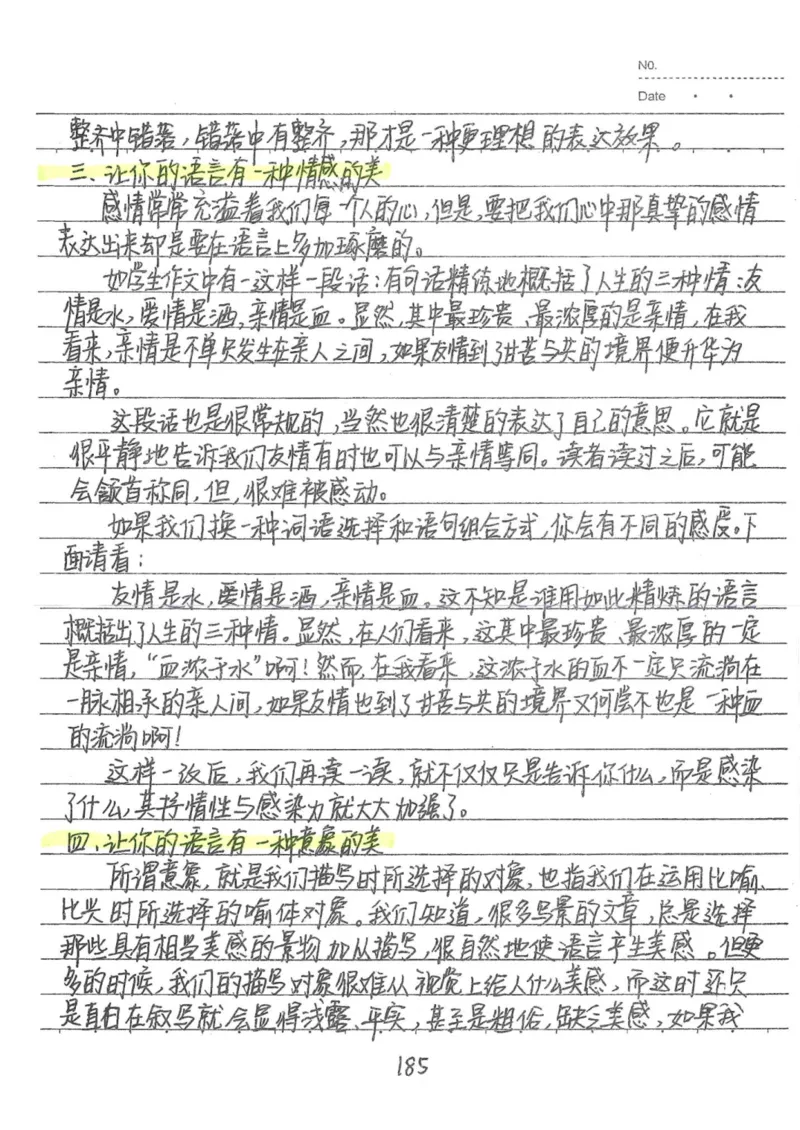 NO.
Date
整齐中错落，错落中有整齐，那才是一种更理想的表达效果。
三、让你的语言有一种情感的美
感情常常充溢着我们每一个人的心，但是，要把我们心中那真挚的感情
表达出来却是要在语言上多加琢磨的。
如学生作文中有一这样一段话：有句话精练地概括了人生的三种情：友
情是水，爱情是酒，亲情是血。显然，其中最珍贵、最浓厚的是亲情，在我
看来，亲情是不单只发生在亲人之间，如果友情到了甘苦与共的境界便升华为
亲情。
这段话也是很常规的，当然也很清楚的表达了自己的意思。它就是
很平静地告诉我们友情有时也可以与亲情等同。读者读过之后，可能
会颔首称同，但，很难被感动。
如果我们换一种词语选择和语句组合方式，你会有不同的感受。下
面请看：
友情是水，爱情是酒，亲情是血。这不知是谁用如此精炼的语言
概括出了人生的三种情。显然，在人们看来，这其中最珍贵、最浓厚的一定
是亲情，“血浓于水”啊！然而，在我看来，这浓于水的血不一定只流淌在
一脉相承的亲人间，如果友情也到了甘苦与共的境界又何尝不也是一种血
的流淌啊！
这样一改后，我们再读一读，就不仅仅只是告诉你什么，而是感染
了什么，其抒情性与感染力就大大加强了。
四、让你的语言有一种意象的美
所谓意象，就是我们描写时所选择的对象，也指我们在运用比喻、
比兴时所选择的喻体对象。我们知道，很多写景的文章，总是选择
那些具有相当美感的景物加从描写，很自然地使语言产生美感。但更
多的时候，我们的描写对象很难从视觉上给人什么美感，而这时还只
是直白在叙写就会显得浅露、平实，甚至是粗俗，缺乏美感，如果我
185